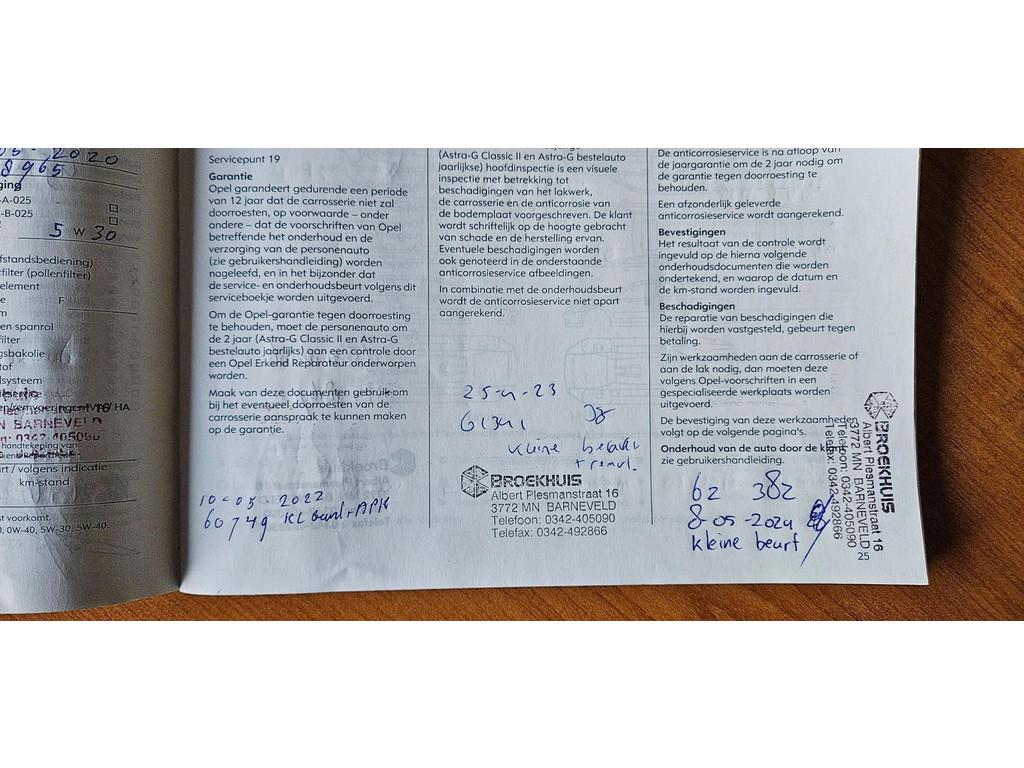 05-2020
8965
ging
-A-025
-B-025
5 W 30
fstandsbediening)
filter (pollenfilter)
element
e F
m
en spanrol
filter
gsbakolie
tof
lsysteem
BARNEVELD
0342-405090
handtekening van
rt / volgens indicatie
km-stand
st voorkomt.
0, 0W-40, 5W-30, 5W-40.
Servicepunt 19
Garantie
Opel garandeert gedurende een periode
van 12 jaar dat de carrosserie niet zal
doorroesten, op voorwaarde – onder
andere – dat de voorschriften van Opel
betreffende het onderhoud en de
verzorging van de personenauto
(zie gebruikershandleiding) worden
nageleefd, en in het bijzonder dat
de service- en onderhoudsbeurt volgens dit
serviceboekje worden uitgevoerd.
Om de Opel-garantie tegen doorroesting
te behouden, moet de personenauto om
de 2 jaar (Astra-G Classic II en Astra-G
bestelauto jaarlijks) aan een controle door
een Opel Erkend Reparateur onderworpen
worden.
Maak van deze documenten gebruik om
bij het eventueel doorroesten van de
carrosserie aanspraak te kunnen maken
op de garantie.
10-05-2022
60749 KL beurt+APK
(Astra-G Classic II en Astra-G bestelauto
jaarlijkse) hoofdinspectie is een visuele
inspectie met betrekking tot
beschadigingen van het lakwerk,
de carrosserie en de anticorrosie van
de bodemplaat voorgeschreven. De klant
wordt schriftelijk op de hoogte gebracht
van schade en de herstelling ervan.
Eventuele beschadigingen worden
ook genoteerd in de onderstaande
anticorrosieservice afbeeldingen.
In combinatie met de onderhoudsbeurt
wordt de anticorrosieservice niet apart
aangerekend.
25-4-23
61341
kleine beurt
+ remvl.
BROEKHUIS
Albert Plesmanstraat 16
3772 MN BARNEVELD
Telefoon: 0342-405090
Telefax: 0342-492866
De anticorrosieservice is na afloop van
de jaargarantie om de 2 jaar nodig om
de garantie tegen doorroesting te
behouden.
Een afzonderlijk geleverde
anticorrosieservice wordt aangerekend.
Bevestigingen
Het resultaat van de controle wordt
ingevuld op de hierna volgende
onderhoudsdocumenten die worden
ondertekend, en waarop de datum en
de km-stand worden ingevuld.
Beschadigingen
De reparatie van beschadigingen die
hierbij worden vastgesteld, gebeurt tegen
betaling.
Zijn werkzaamheden aan de carrosserie of
aan de lak nodig, dan moeten deze
volgens Opel-voorschriften in een
gespecialiseerde werkplaats worden
uitgevoerd.
De bevestiging van deze werkzaamheden
volgt op de volgende pagina's.
Onderhoud van de auto door de klant
zie gebruikershandleiding.
62 382
8-05-2024
kleine beurt
BROEKHUIS
Albert Plesmanstraat 16
3772 MN BARNEVELD
Telefoon: 0342-405090
Telefax: 0342-492866
25